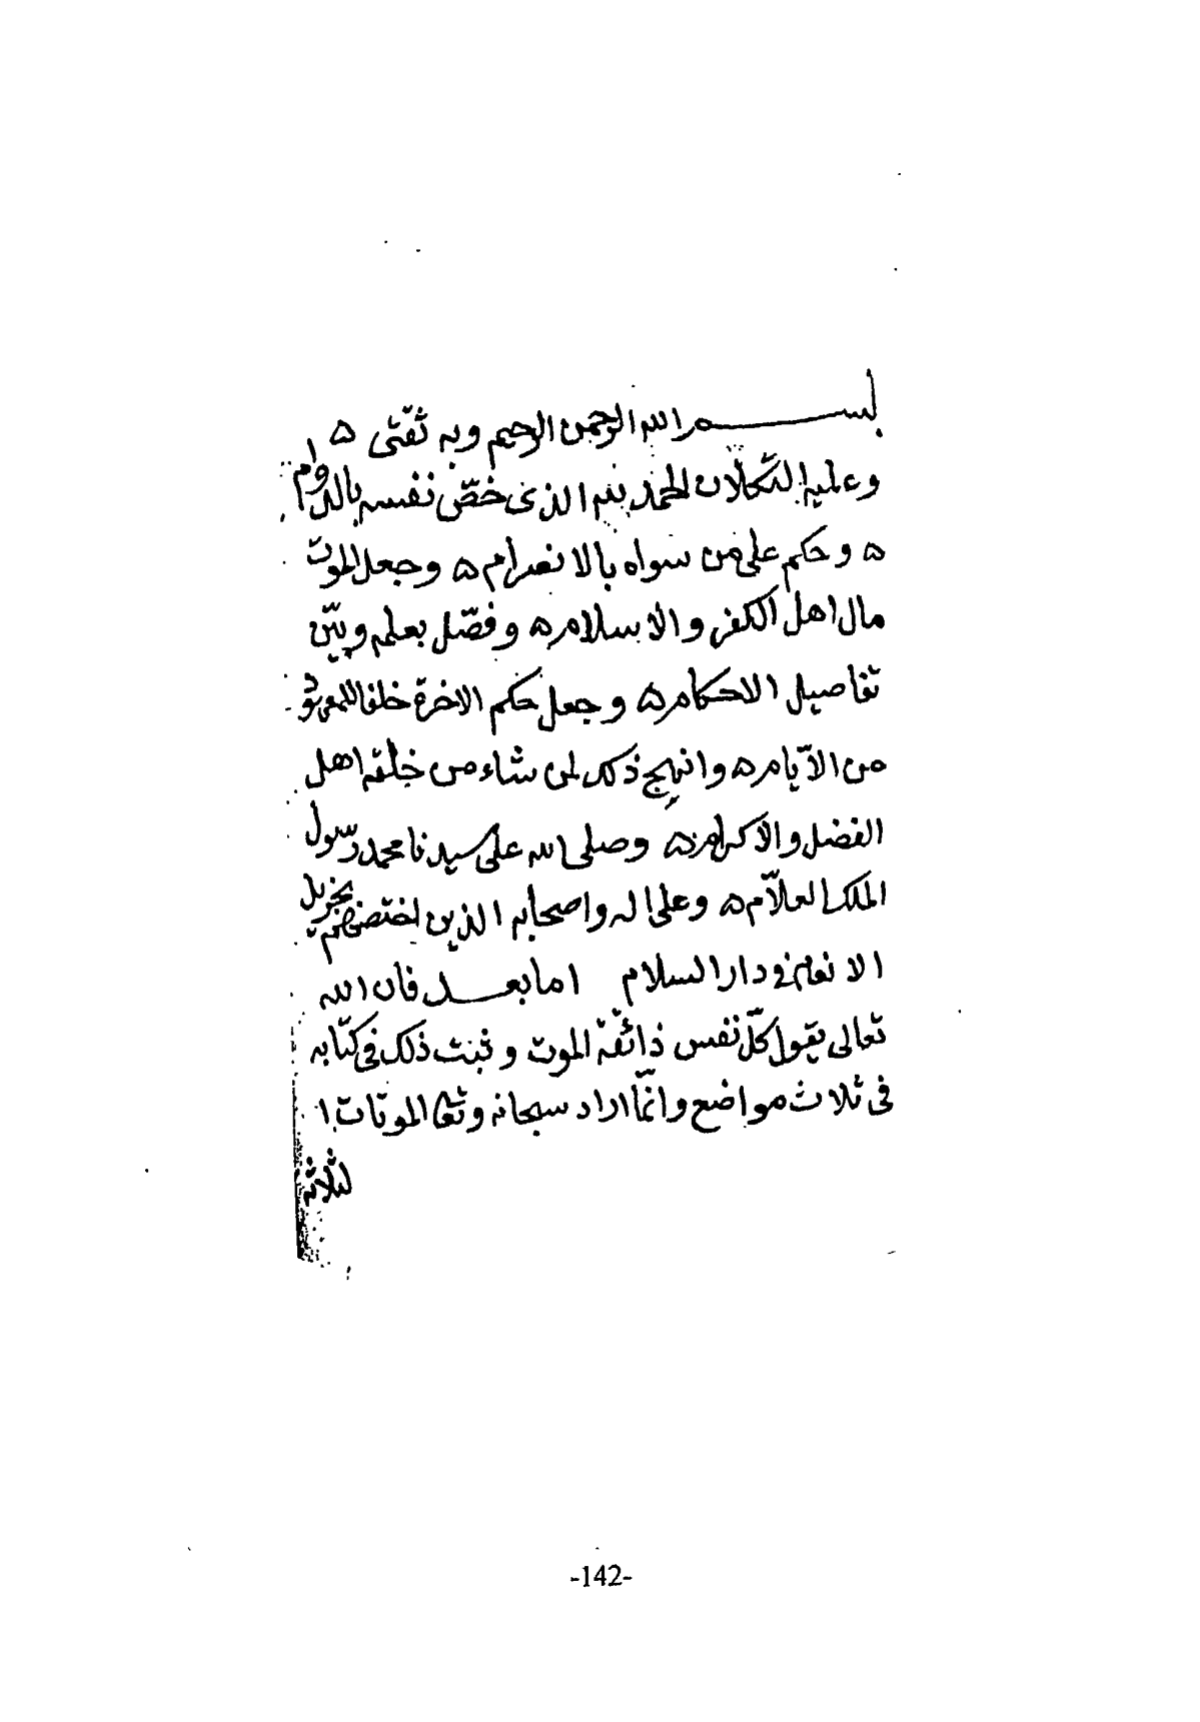 بسم الله الرحمن الرحيم وبه ثقتى ه
وعليه التكلان الحمد لله الذى خصّ نفسه بالدوام
ه وحكم على من سواه بالانصرام ه وجعل الموت
مال اهل الكفر والاسلام ه وفصّل بعلمه وبيّن
تفاصيل الاحكام ه وجعل حكم الاخرة خلفا
من الآيام ه وانهج ذلك لمن شاء من خلقه اهل
الفضل والاكرام ه وصلى الله على سيدنا محمد رسول
الملك العلاّم ه وعلى اله واصحابه الذين اختصهم بجزيل
الانعام فى دار السلام اما بعد فان الله
تعالى يقول كلّ نفس ذائقة الموت وثبت ذلك فى كتابه
فى ثلاث مواضع وانمّا اراد سبحانه وتعا الموتات ا
لثلاثه
-142-